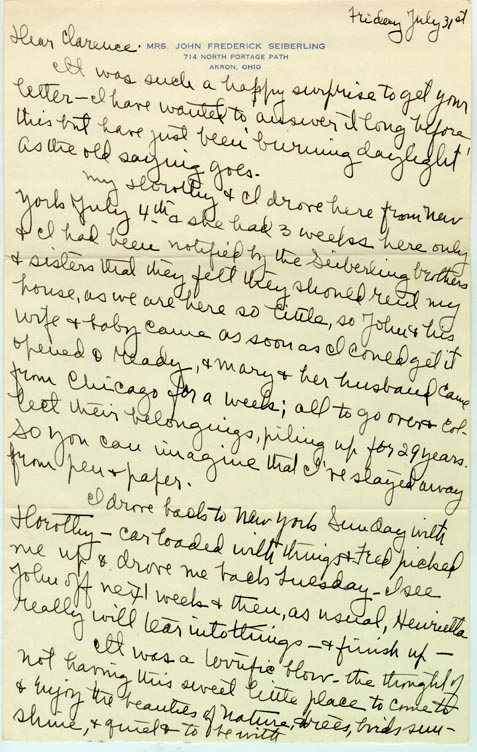 Friday July 31st
Dear Clarence.
MRS. JOHN FREDERICK SEIBERLING
714 NORTH PORTAGE PATH
AKRON, OHIO
It was such a happy surprise to get your
letter – I have wanted to answer it long before
this but have just been "burning daylight"
as the old saying goes.
My Dorothy & I drove here from New
York July 4th & she had 3 weeks here only
& I had been notified by the Seiberling brothers
& sisters that they felt they should rent my
house, as we are here so little, so John & his
wife & baby came as soon as I could get it
opened & ready, & Mary & her husband came
from Chicago for a week; all to go over & col-
lect their belongings, piling up for 29 years.
So you can imagine that I've stayed away
from pen & paper.
I drove back to New York Sunday with
Dorothy – car loaded with things & Fred picked
me up & drove me back Tuesday – I see
John off next week & then, as usual, Henrietta
really will tear into things – & finish up –
It was a terrific blow – the thought of
not having this sweet little place to come to
& enjoy the beauties of nature, trees, birds, sun-
shine, & quiet & to be with